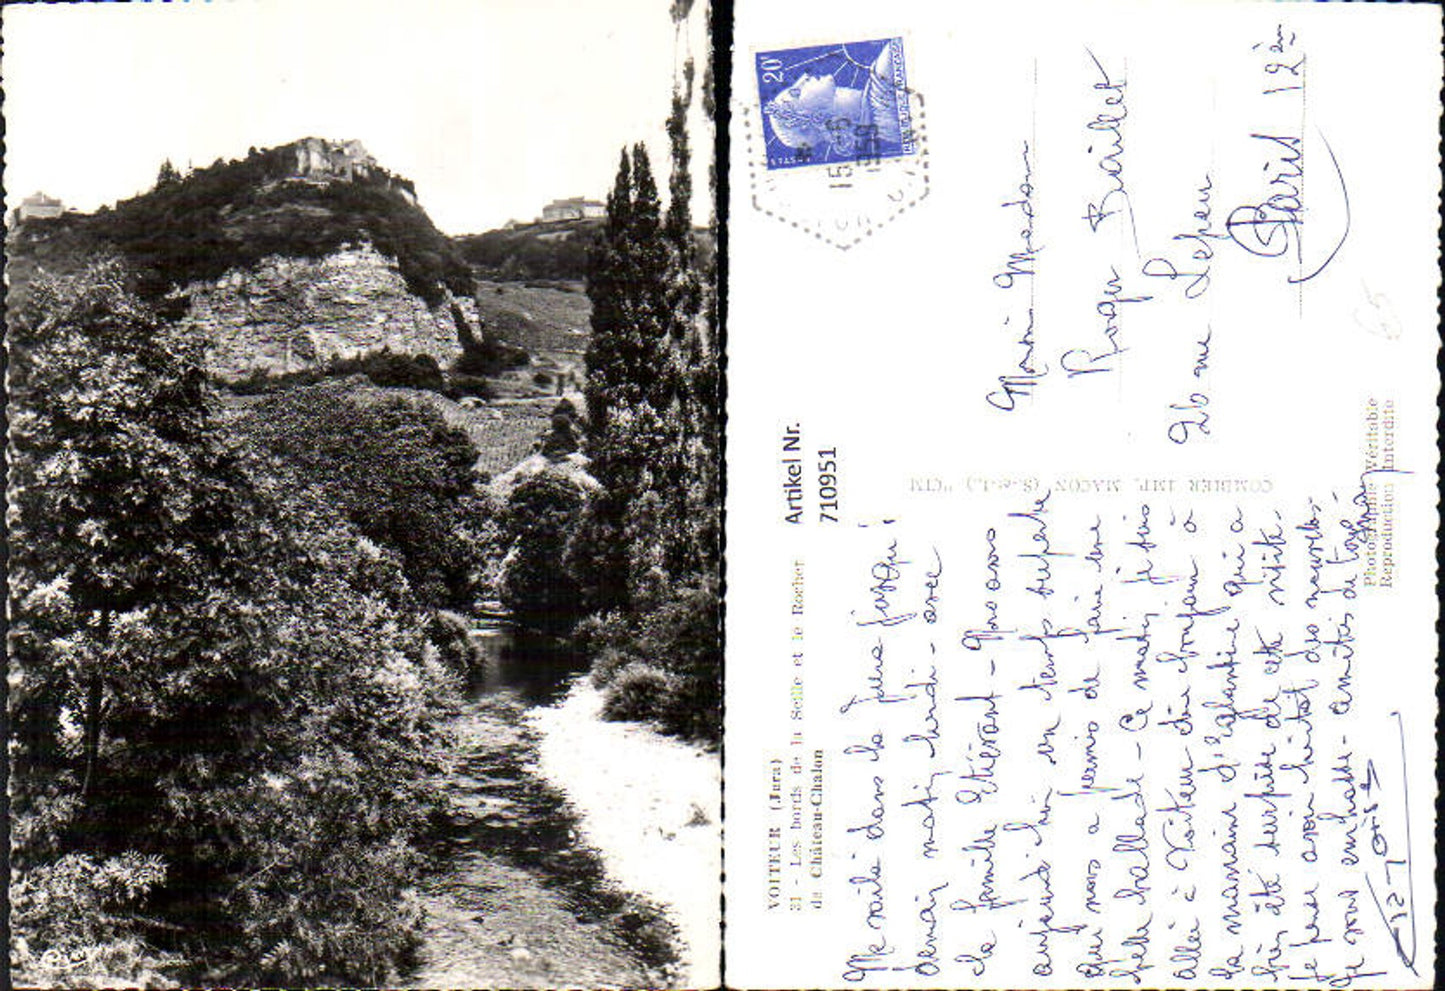 VOITEUR (Jura)
31 - Les bords de la Seille et le Rocher
de Château-Chalon
Artikel Nr.
710951
Me voilà dans le Jura jusqu'
demain matin, lundi - avec
la famille - Nous avons
aujourd'hui un temps superbe
qui nous a permis de faire une
belle ballade - Ce matin je suis
allée à Voiteur dire bonjour à
la marraine d' qui a
très été surprise de cette visite.
Je pense avoir bientôt des nouvelles
Je vous embrasse - Amitiés de
COMBIER IMP. MACON (S.-et-L.) "CIM"
Photographie Véritable
Reproduction Interdite
20F
POSTES
15 - 6
1959
Madame
Roger Baillet
26 rue
Paris 12ème
65